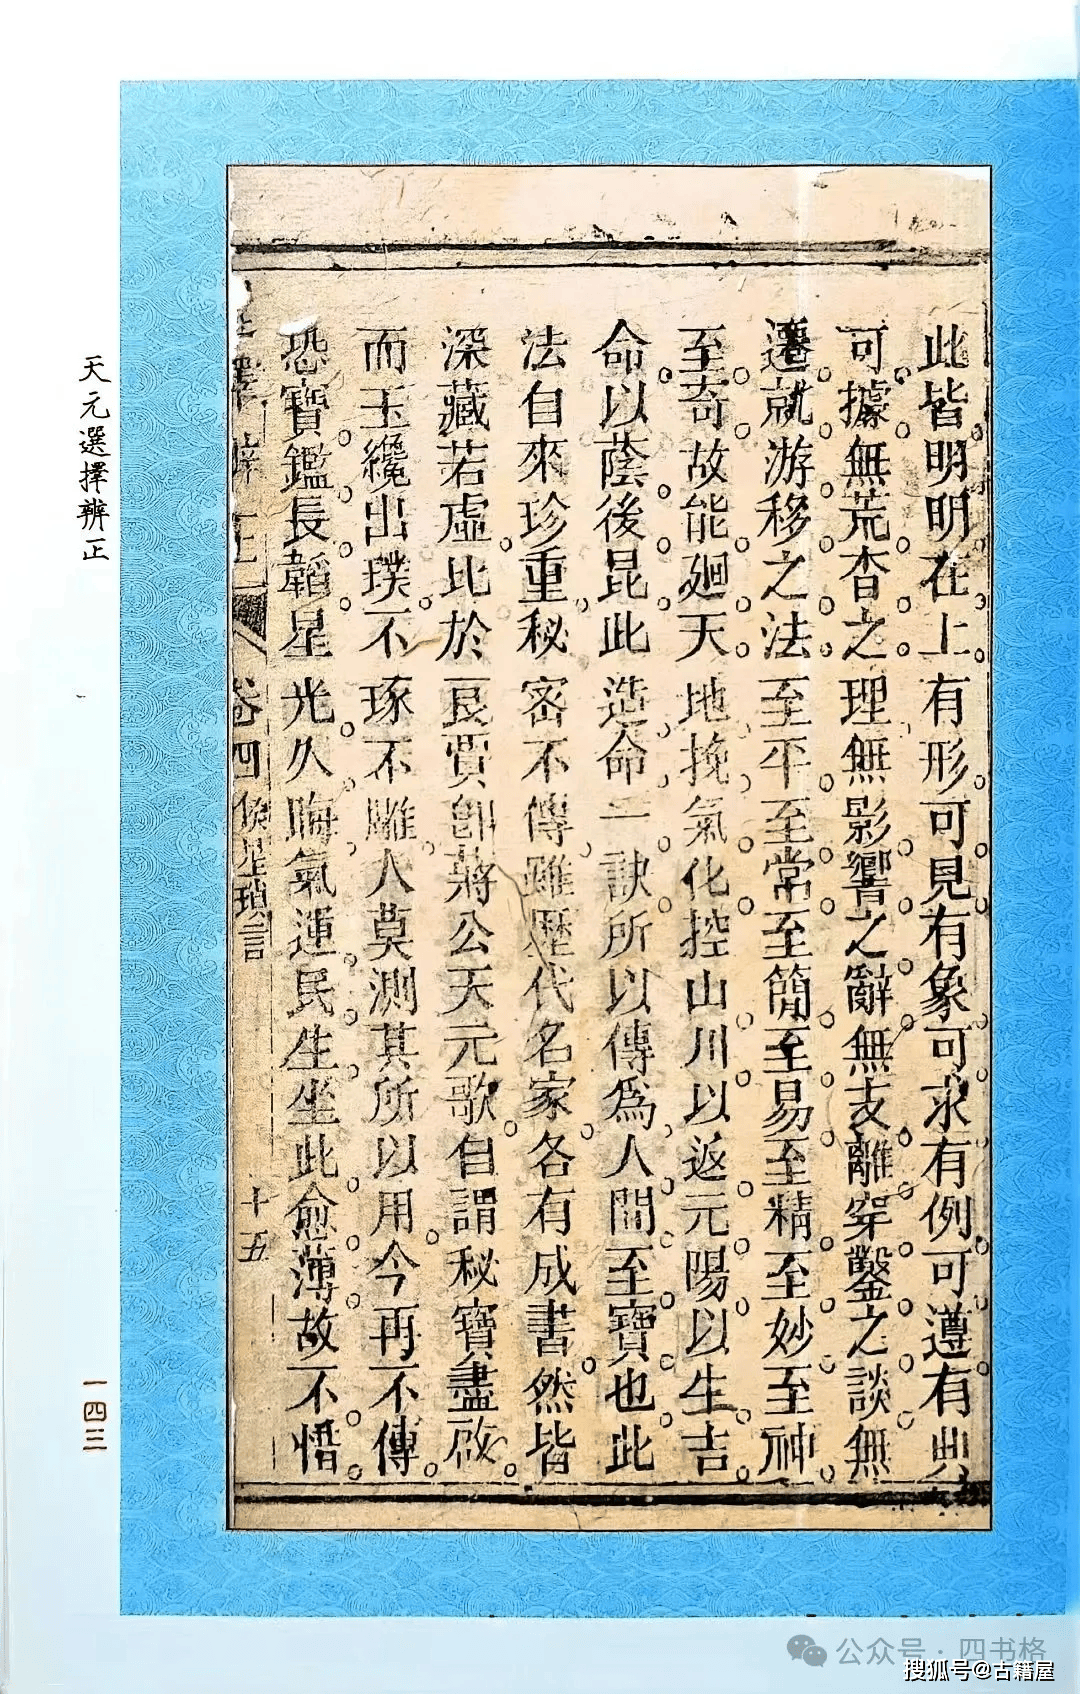 此皆明明在上有形可見有象可求有例可遵有典
可據無荒杳之理無影響之辭無支離穿鑿之談無
遷就游移之法至平至常至簡至易至精至妙至神
至奇故能廻天地挽氣化控山川以返元陽以生吉
命以蔭後昆此造命一訣所以傳為人間至寶也此
法自來珍重秘密不傳雖歷代名家各有成書然皆
深藏若虛比於良賈卽蔣公天元歌自謂秘寶盡啟
而玉纔出璞不琢不雕人莫測其所以用今再不傳
恐寶鑑長韜星光久晦氣運民生坐此愈薄故不惜
選擇辨正 卷四 候星瑣言 十五
天元選擇辨正
一四三
公众号·四书格
搜狐号@古籍屋